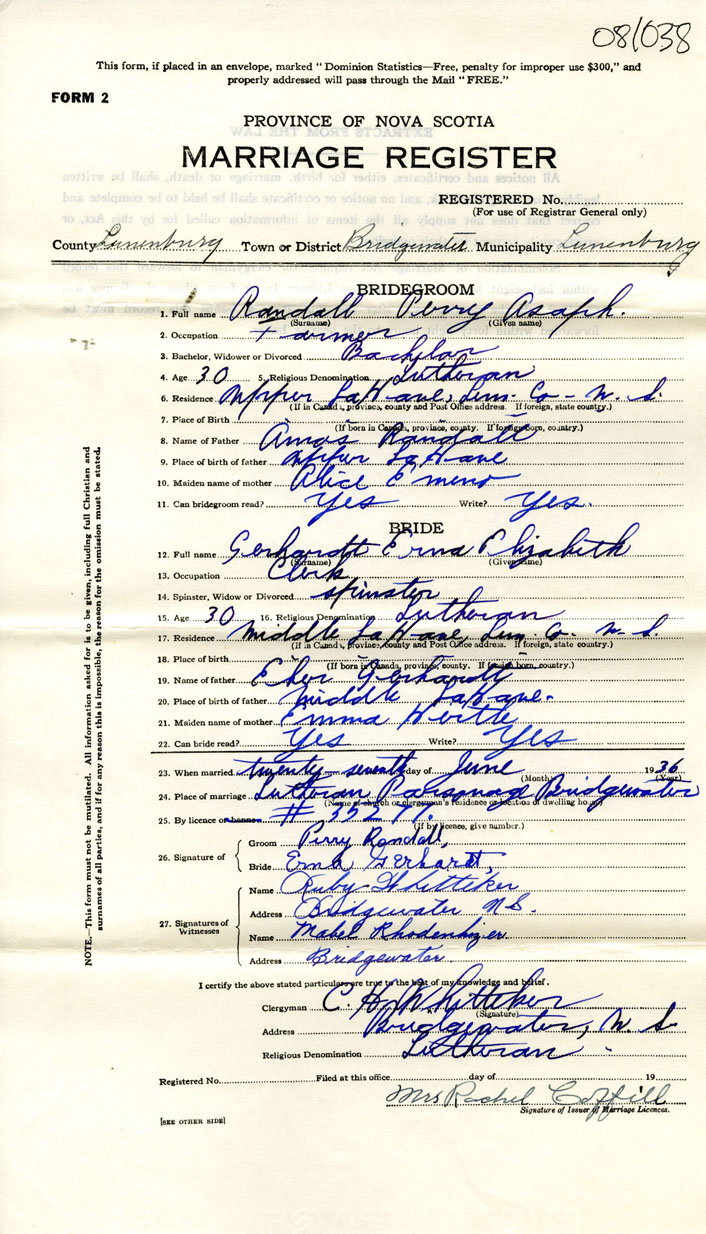 08/038
This form, if placed in an envelope, marked "Dominion Statistics—Free, penalty for improper use $300," and
properly addressed will pass through the Mail "FREE."
FORM 2
PROVINCE OF NOVA SCOTIA
MARRIAGE REGISTER
REGISTERED No.
(For use of Registrar General only)
County Lunenburg Town or District Bridgewater Municipality Lunenburg
BRIDEGROOM
1. Full name Randall Perry Asaph.
(Surname) (Given name)
2. Occupation Farmer
3. Bachelor, Widower or Divorced Bachelor
4. Age 30 5. Religious Denomination Lutheran
6. Residence Upper LaHave, Lun. Co - N. S.
(If in Canada, province, county and Post Office address. If foreign, state country.)
7. Place of Birth
(If born in Canada, province, county. If foreign born, country.)
8. Name of Father Amos Randall
9. Place of birth of father Upper LaHave
10. Maiden name of mother Alice E'meno
11. Can bridegroom read? Yes Write? Yes.
BRIDE
12. Full name Gerhardt Erna Elizabeth
(Surname) (Given name)
13. Occupation Clerk
14. Spinster, Widow or Divorced spinster
15. Age 30 16. Religious Denomination Lutheran
17. Residence Middle LaHave, Lun. Co. N. S.
(If in Canada, province, county and Post Office address. If foreign, state country.)
18. Place of birth
(If born in Canada, province, county. If foreign born, country.)
19. Name of father Eber Gerhardt
20. Place of birth of father Middle LaHave.
21. Maiden name of mother Emma Hirtle
22. Can bride read? Yes Write? Yes
23. When married twenty-seventh day of June 1936
(Month) (Year)
24. Place of marriage Lutheran Parsonage Bridgewater
(Name of church or clergyman's residence or location of dwelling house)
25. By licence or banns # 35277.
(If by licence, give number.)
26. Signature of
Groom Perry Randall,
Bride Erna Gerhardt,
27. Signatures of Witnesses
Name Ruby Whitteker
Address Bridgewater N S.
Name Mabel Rhodenhizer
Address Bridgewater.
I certify the above stated particulars are true to the best of my knowledge and belief.
Clergyman C. H. Whitteker
(Signature)
Address Bridgewater, N. S.
Religious Denomination Lutheran.
Registered No. Filed at this office day of 19
Mrs Rachel Coffill
Signature of Issuer of Marriage Licences.
[SEE OTHER SIDE]
NOTE.—This form must not be mutilated. All information asked for is to be given, including full Christian and
surnames of all parties, and if for any reason this is impossible, the reason for the omission must be stated.